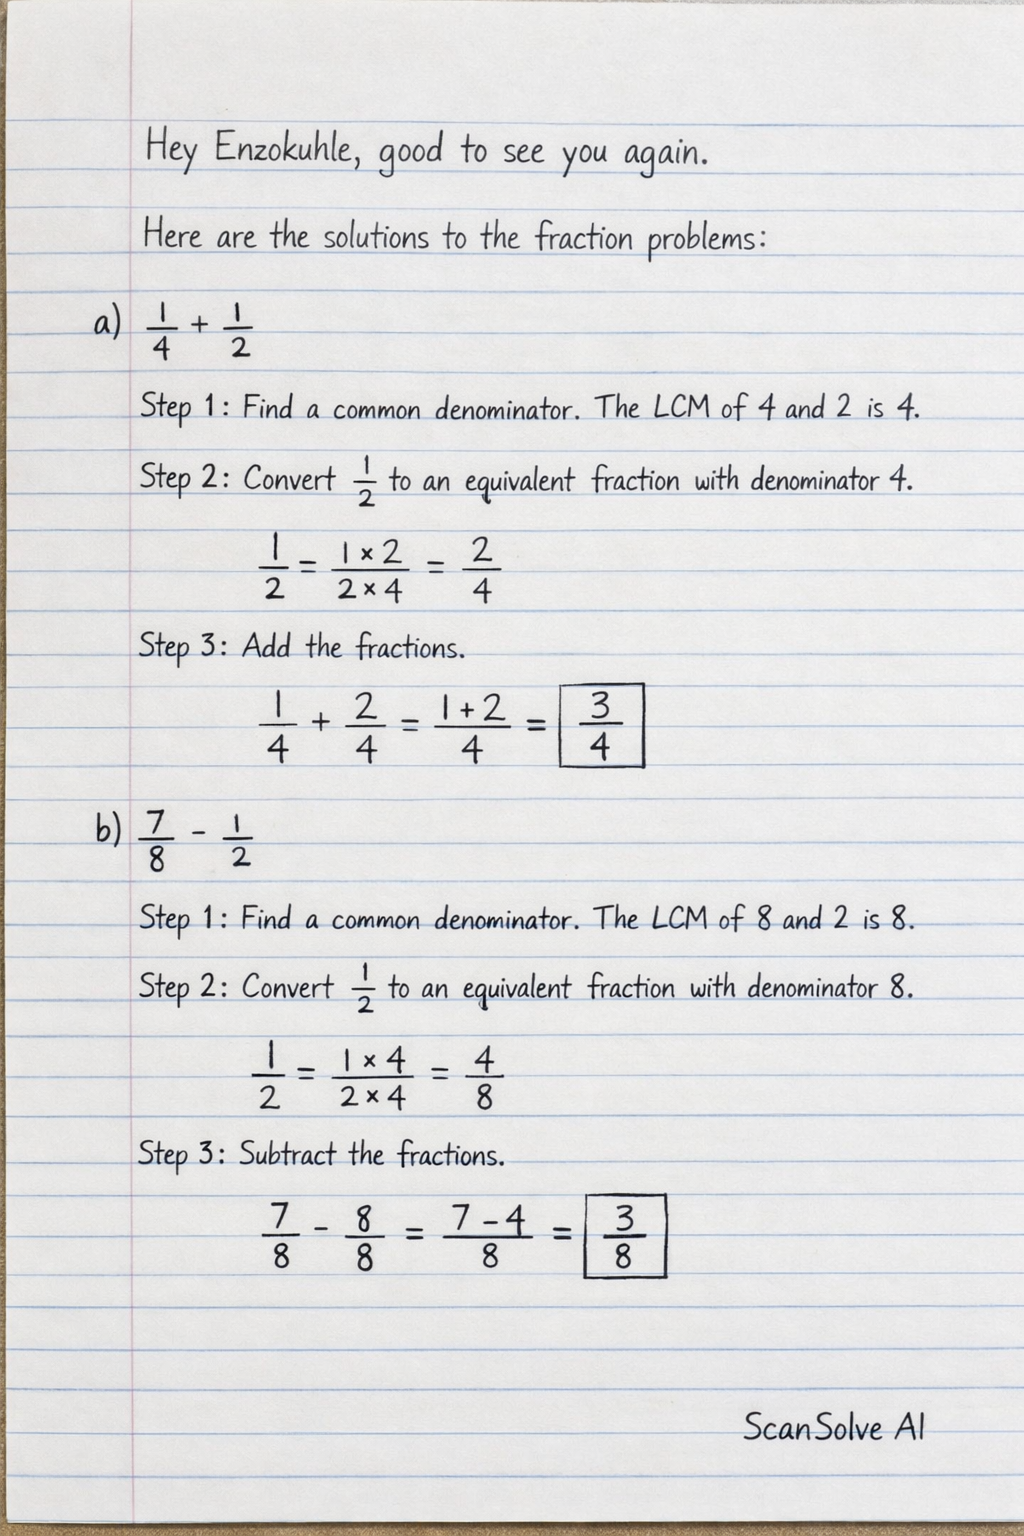 Hey Enzokuhle, good to see you again.
Here are the solutions to the fraction problems:
a) 1/4 + 1/2
Step 1: Find a common denominator. The LCM of 4 and 2 is 4.
Step 2: Convert 1/2 to an equivalent fraction with denominator 4.
1/2 = (1 × 2)/(2 × 4) = 2/4
Step 3: Add the fractions.
1/4 + 2/4 = (1 + 2)/4 = 3/4
b) 7/8 - 1/2
Step 1: Find a common denominator. The LCM of 8 and 2 is 8.
Step 2: Convert 1/2 to an equivalent fraction with denominator 8.
1/2 = (1 × 4)/(2 × 4) = 4/8
Step 3: Subtract the fractions.
7/8 - 8/8 = (7 - 4)/8 = 3/8
ScanSolve AI